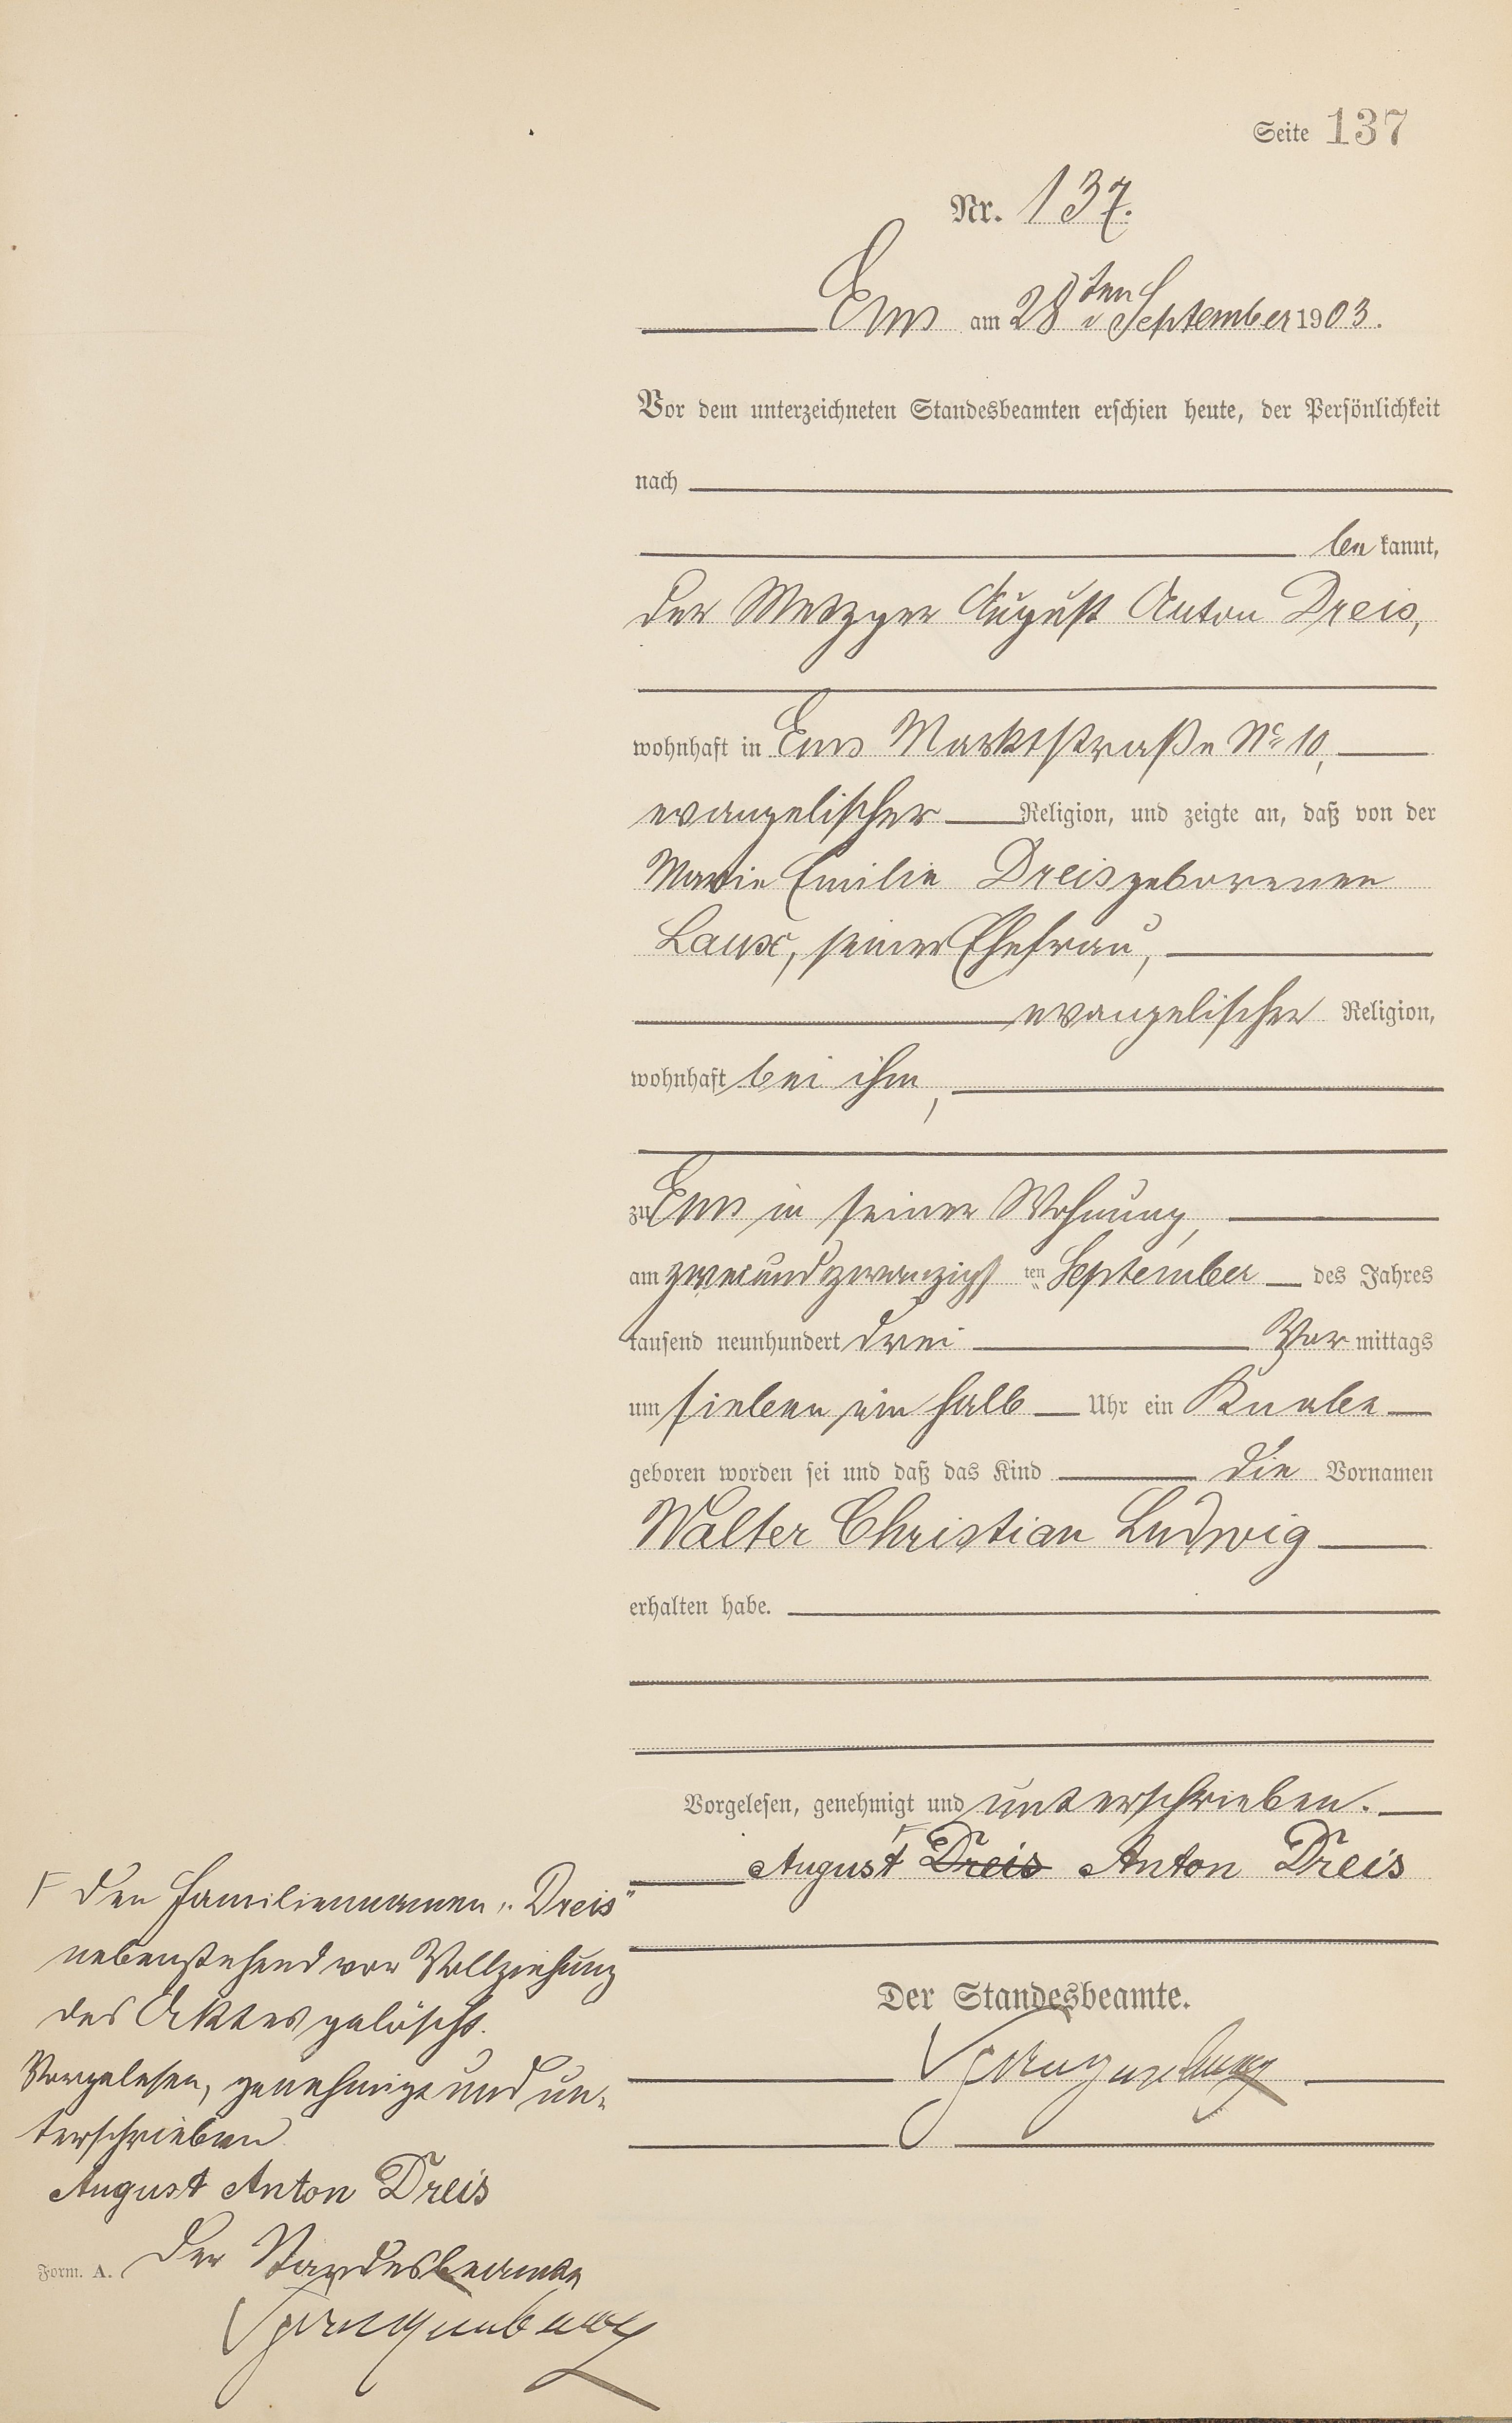 Seite 137
Nr. 137.
Ems am 28ten September 1903.
Vor dem unterzeichneten Standesbeamten erschien heute, der Persönlichkeit
nach
be kannt,
der Metzger August Anton Dreis,
wohnhaft in Ems Marktstraße No 10,
evangelischer Religion, und zeigte an, daß von der
Marie Emilie Dreis geborenen
Laux, seiner Ehefrau,
evangelischer Religion,
wohnhaft bei ihm,
zu Ems in seiner Wohnung,
am zweiundzwanzigsten September des Jahres
tausend neunhundert drei Vor mittags
um sieben ein halb Uhr ein Knabe
geboren worden sei und daß das Kind die Vornamen
Walter Christian Ludwig
erhalten habe.
Vorgelesen, genehmigt und unterschrieben.
August Dreis Anton Dreis
Der Standesbeamte.
Den Familiennamen „Dreis"
nebenstehend vor Vollziehung
des Aktes gelöscht.
Vorgelesen, genehmigt und un-
terschrieben
August Anton Dreis
Der Standesbeamte
Form. A.